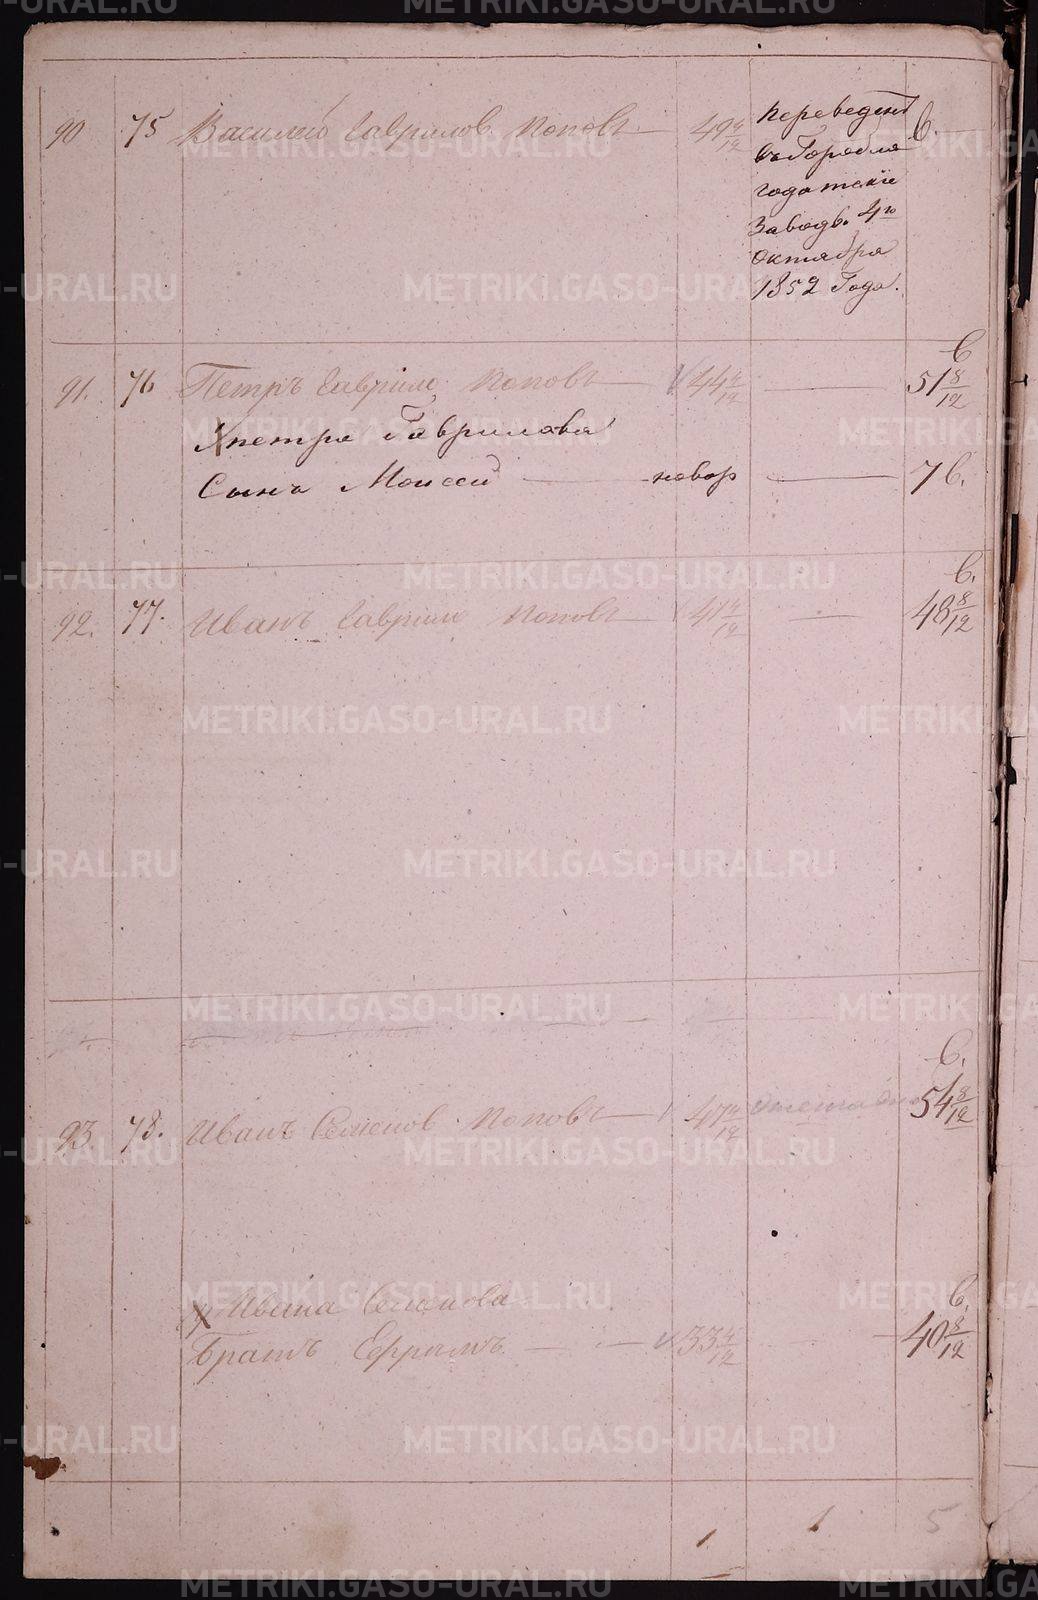 90 75 Василей Гаврилов Поповъ 49 4/12 Переведенъ в.
въ Горобла
годатскіе
Заводъ. 4го
Октября
1852 Года.
91. 76 Петръ Гаврило Поповъ 44 4/12 в 51 8/12
Петра Гаврилова
Сынъ Моисей новор 7 в.
92. 77. Иванъ Гаврило Поповъ 41 4/12 в. 48 8/12
93. 78. Иванъ Семенов Поповъ 47 4/12 в. 54 8/12
Ивана Семенова
Братъ Ефримъ 33 4/12 в. 40 8/12
1 1 5
METRIKI.GASO-URAL.RU